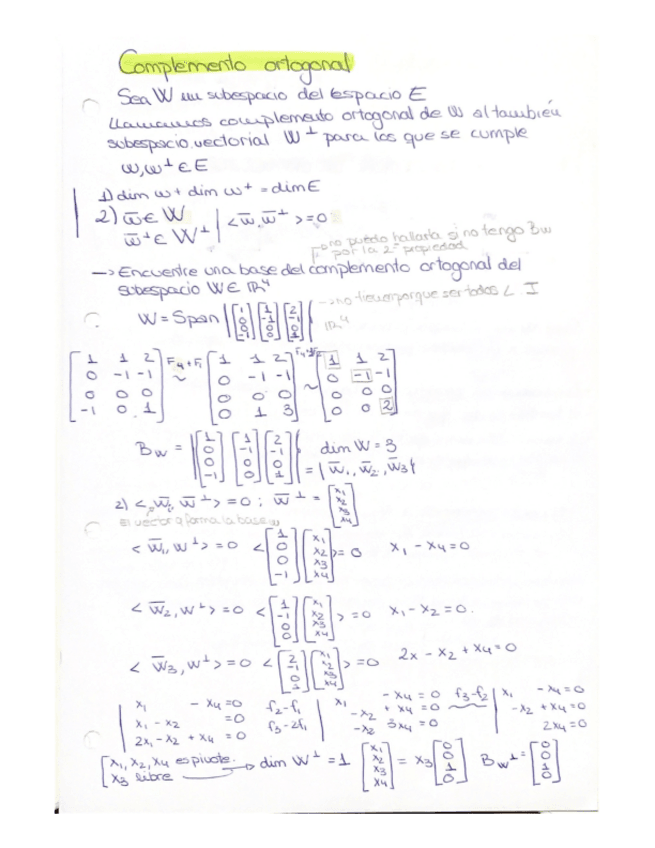 Complemento ortogonal
Sea W un subespacio del espacio E
Llamamos complemento ortogonal de W al también
subespacio vectorial W⊥ para los que se cumple
w, w⊥ ∈ E
1) dim w + dim w⊥ = dim E
2) w̄ ∈ W
w̄⊥ ∈ W⊥ | <w̄, w̄⊥> = 0
no puedo hallarla si no tengo Bw
por la 2ª propiedad
→ Encuentre una base del complemento ortogonal del
subespacio W ∈ ℝ⁴
W = Span {[1 0 0 -1] [1 -1 0 0] [2 -1 0 1]} → no tienen porque ser todos L I
ℝ⁴
[1 1 2; 0 -1 -1; 0 0 0; -1 0 1] F4+F1 ~ [1 1 2; 0 -1 -1; 0 0 0; 0 1 3] ~ [1 1 2; 0 -1 -1; 0 0 0; 0 0 2]
Bw = {[1 0 0 -1] [1 -1 0 0] [2 -1 0 1]} dim W = 3
= {w̄1, w̄2, w̄3}
2) <w̄i, w̄⊥> = 0 ; w̄⊥ = [x1 x2 x3 x4]
El vector q forma la base w
<w̄1, w⊥> = 0 <[1 0 0 -1] [x1 x2 x3 x4]> = 0 x1 - x4 = 0
<w̄2, w⊥> = 0 <[1 -1 0 0] [x1 x2 x3 x4]> = 0 x1 - x2 = 0.
<w̄3, w⊥> = 0 <[2 -1 0 1] [x1 x2 x3 x4]> = 0 2x - x2 + x4 = 0
x1 - x4 = 0 f2-f1 x1 - x4 = 0 f3-f2 x1 - x4 = 0
x1 - x2 = 0 f3-2f1 -x2 + x4 = 0 -x2 + x4 = 0
2x1 - x2 + x4 = 0 -x2 3x4 = 0 2x4 = 0
[x1, x2, x4 es pivote.
x3 libre → dim W⊥ = 1 [x1 x2 x3 x4] = x3 [0 0 1 0] Bw⊥ = [0 0 1 0]